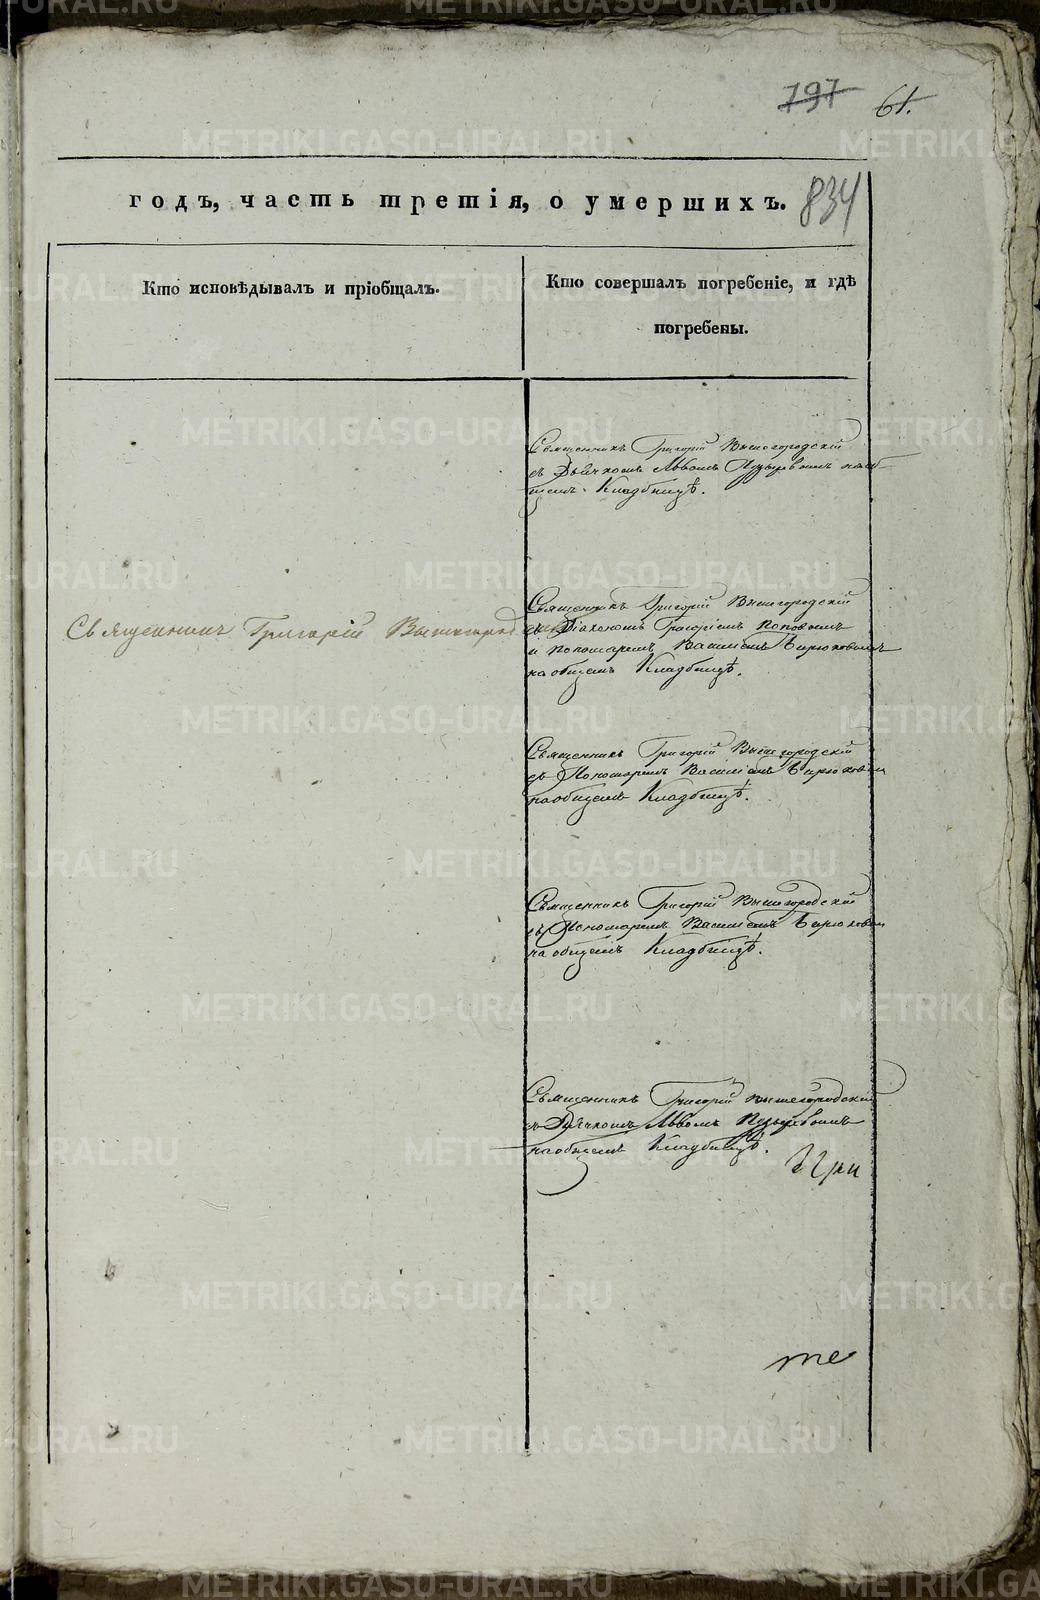 797 61.
годъ, часть третія, о умершихъ. 834
Кто исповѣдывалъ и пріобщалъ.
Кто совершалъ погребеніе, и гдѣ
погребены.
Священникъ Григорій Вышегородскій
съ Дьячкомъ Львомъ Пузыревымъ на об-
щемъ Кладбищѣ.
Священникъ Григорій Вышегород
Священникъ Григорій Вышегородскій
съ Діакономъ Григоріемъ Поповымъ
и Пономаремъ Василіемъ Бирюковымъ
на общемъ Кладбищѣ.
Священникъ Григорій Вышегородскій
съ Пономаремъ Василіемъ Бирюковым
на общемъ Кладбищѣ.
Священникъ Григорій Вышегородскій
съ Пономаремъ Василіемъ Бирюковым
на общемъ Кладбищѣ.
Священникъ Григорій Вышегородскій
съ Дьячкомъ Львомъ Пузыревымъ
на общемъ Кладбищѣ.
METRIKI.GASO-URAL.RU